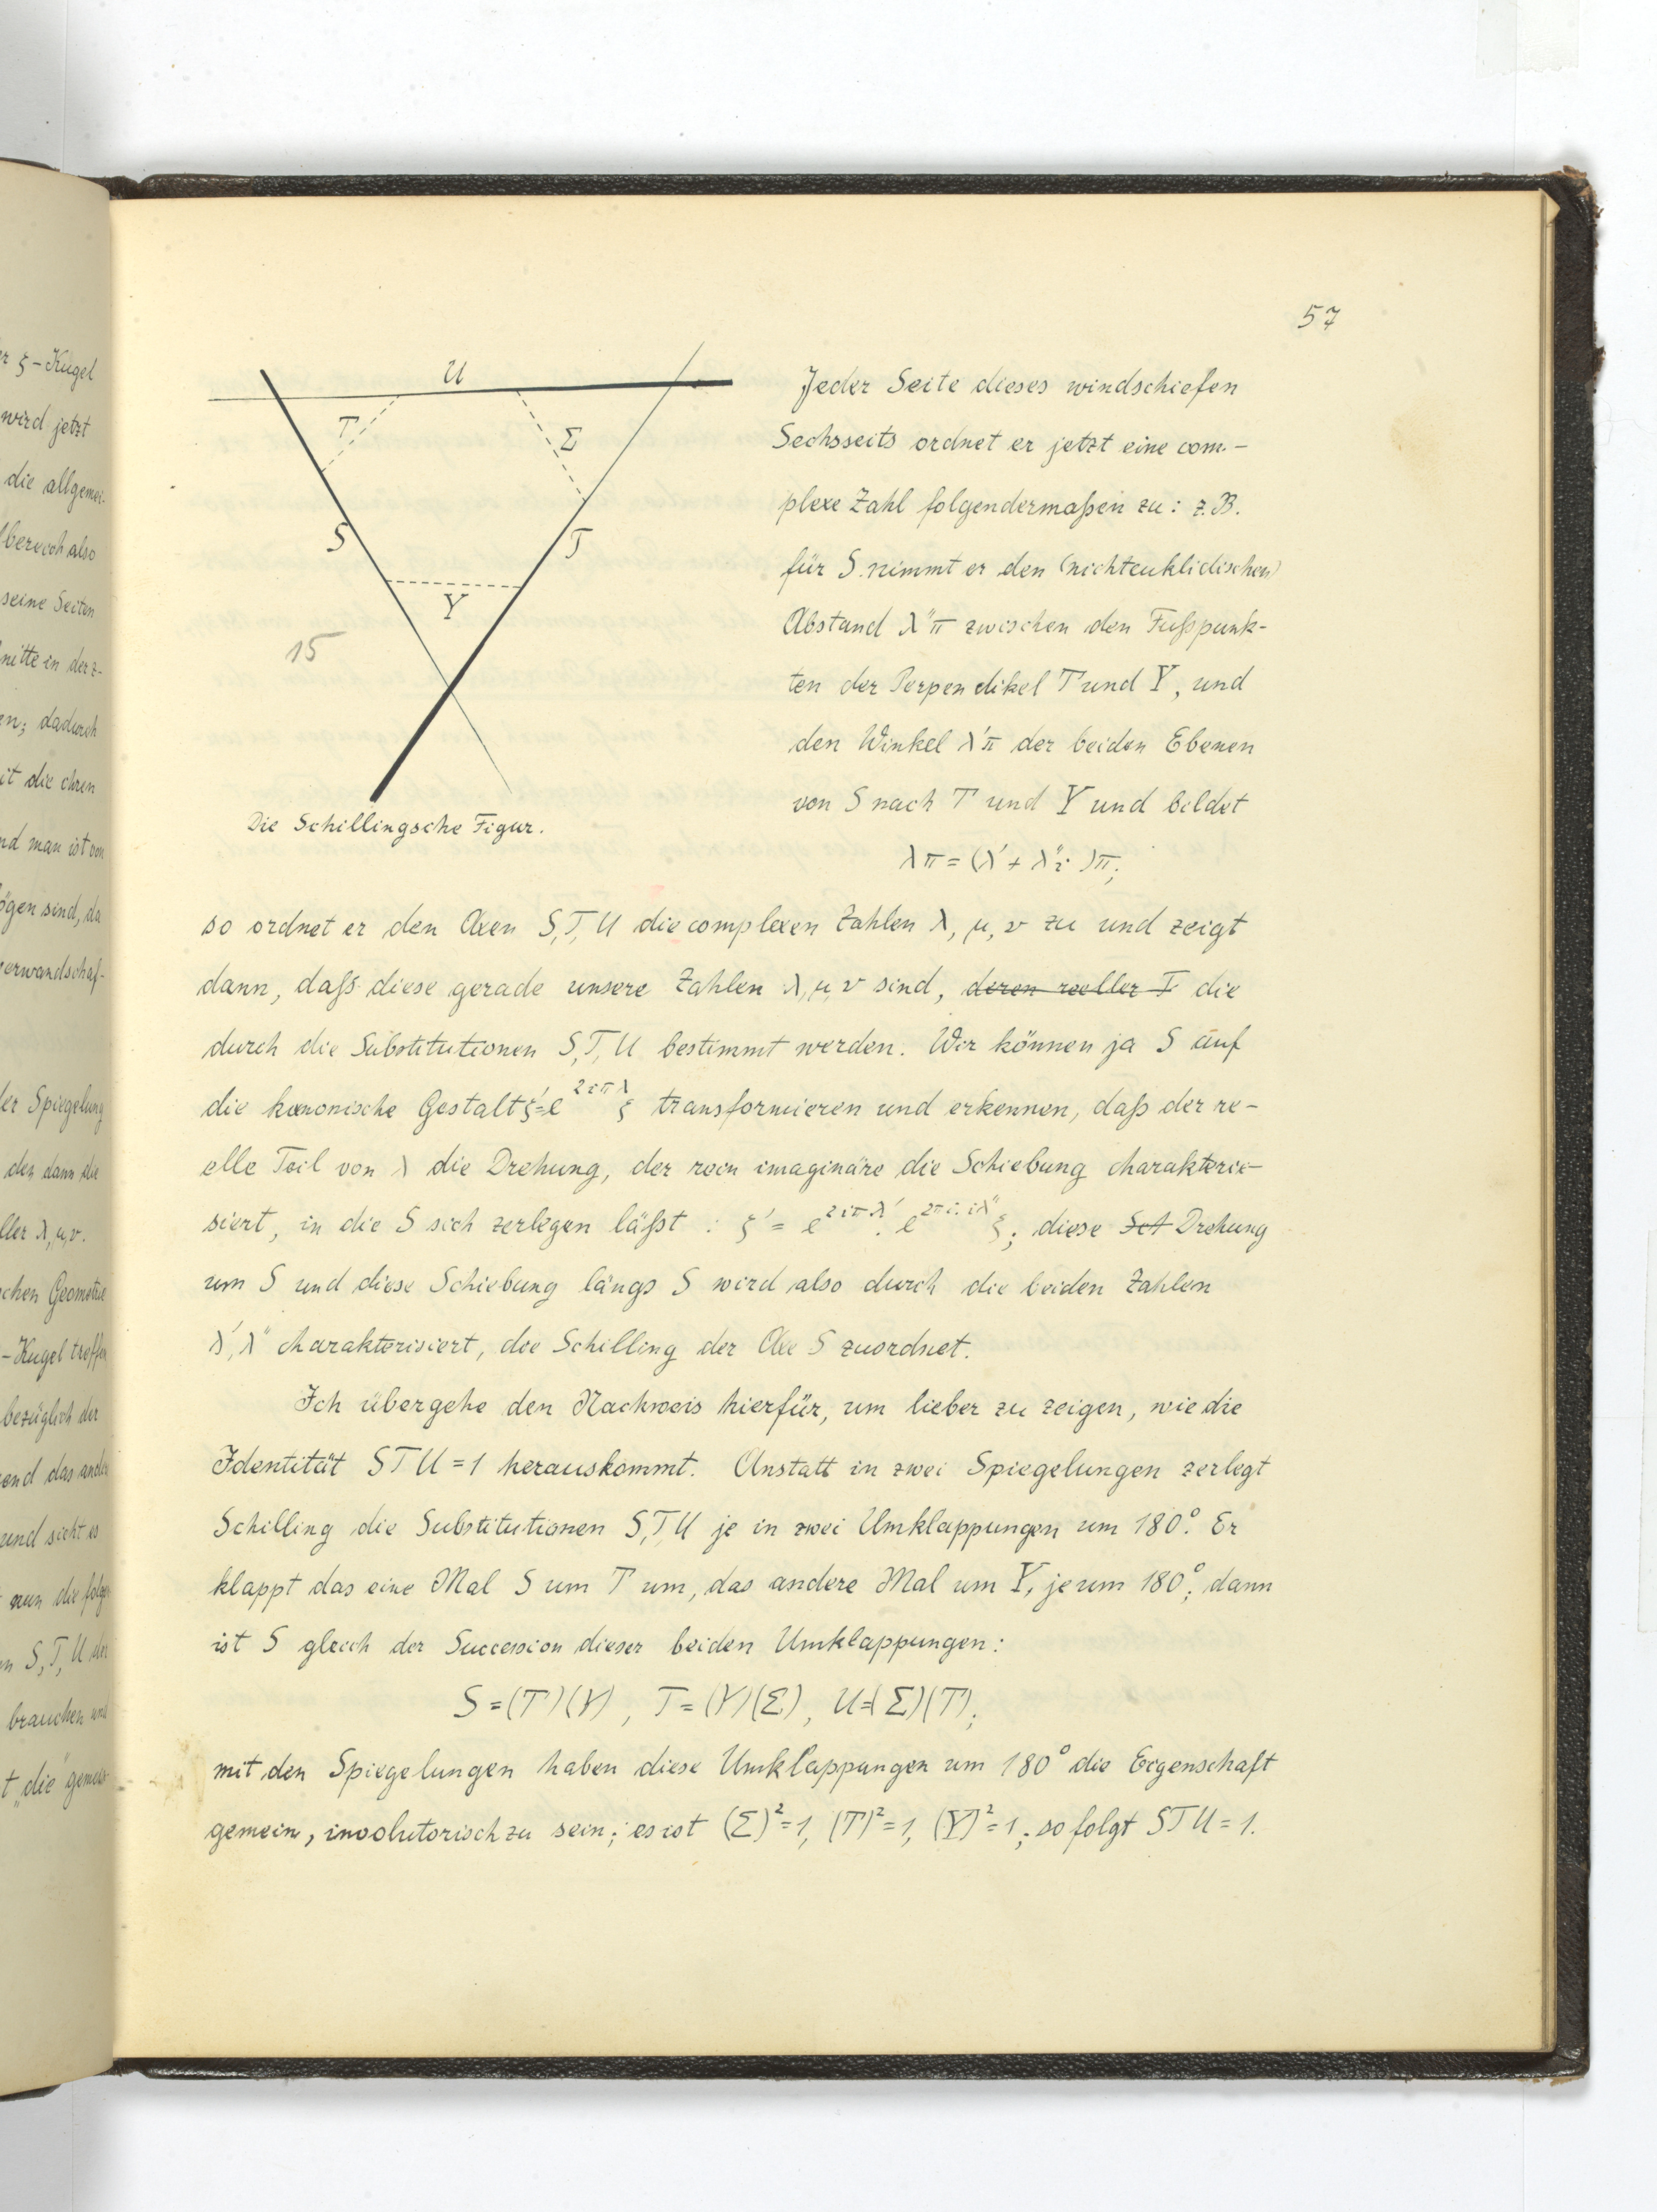 57
U
T
Σ
S
T
Y
15
Die Schillingsche Figur.
Jeder Seite dieses windschiefen
Sechsseits ordnet er jetzt eine com-
plexe Zahl folgendermaßen zu: z.B.
für S nimmt er den (nichteuklidischen)
Abstand λ''π zwischen den Fußpunk-
ten der Perpendikel T und Y, und
den Winkel λ'π der beiden Ebenen
von S nach T und Y und bildet
λπ = (λ' + λ''i)π;
so ordnet er den Axen S, T, U die complexen Zahlen λ, μ, ν zu und zeigt
dann, daß diese gerade unsere Zahlen λ, μ, ν sind, deren reeller T die
durch die Substitutionen S, T, U bestimmt werden. Wir können ja S auf
die kanonische Gestalt ξ' = e^{2iπλ} ξ transformieren und erkennen, daß der re-
elle Teil von λ die Drehung, der rein imaginäre die Schiebung charakteri-
siert, in die S sich zerlegen läßt : ξ' = e^{2iπλ'} . e^{2πi.iλ''} ξ; diese Sch Drehung
um S und diese Schiebung längs S wird also durch die beiden Zahlen
λ', λ'' charakterisiert, die Schilling der Axe S zuordnet.
Ich übergehe den Nachweis hierfür, um lieber zu zeigen, wie die
Identität STU = 1 herauskommt. Anstatt in zwei Spiegelungen zerlegt
Schilling die Substitutionen S, T, U je in zwei Umklappungen um 180°. Er
klappt das eine Mal S um T um, das andere Mal um Y, je um 180°; dann
ist S gleich der Succession dieser beiden Umklappungen:
S = (T)(Y), T = (Y)(Σ), U = (Σ)(T);
mit den Spiegelungen haben diese Umklappungen um 180° die Eigenschaft
gemein, involutorisch zu sein; es ist (Σ)² = 1, (T)² = 1, (Y)² = 1; so folgt STU = 1.
ξ-Kugel
wird jetzt
die allgemei-
bereich also
seine Seiten
nitte in der z-
dadurch
die ihren
nd man ist von
ögen sind, da
erwandschaf-
der Spiegelung
den dann die
ller λ, μ, ν.
chen Geometrie
-Kugel treffen
bezüglich der
end das andere
und sieht es
nun die folgen
S, T, U der
brauchen und
t „die" gemein